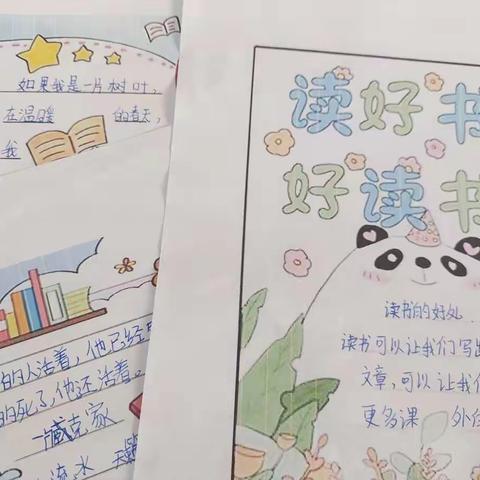 如果我是一片树叶，
在温暖 的春天，
我
的人活着，他已经
的死了，他还活着。
臧克家
流水
读好书
好读书
读书的好处
读书可以让我们写出
文章，可以让我们
更多课 外